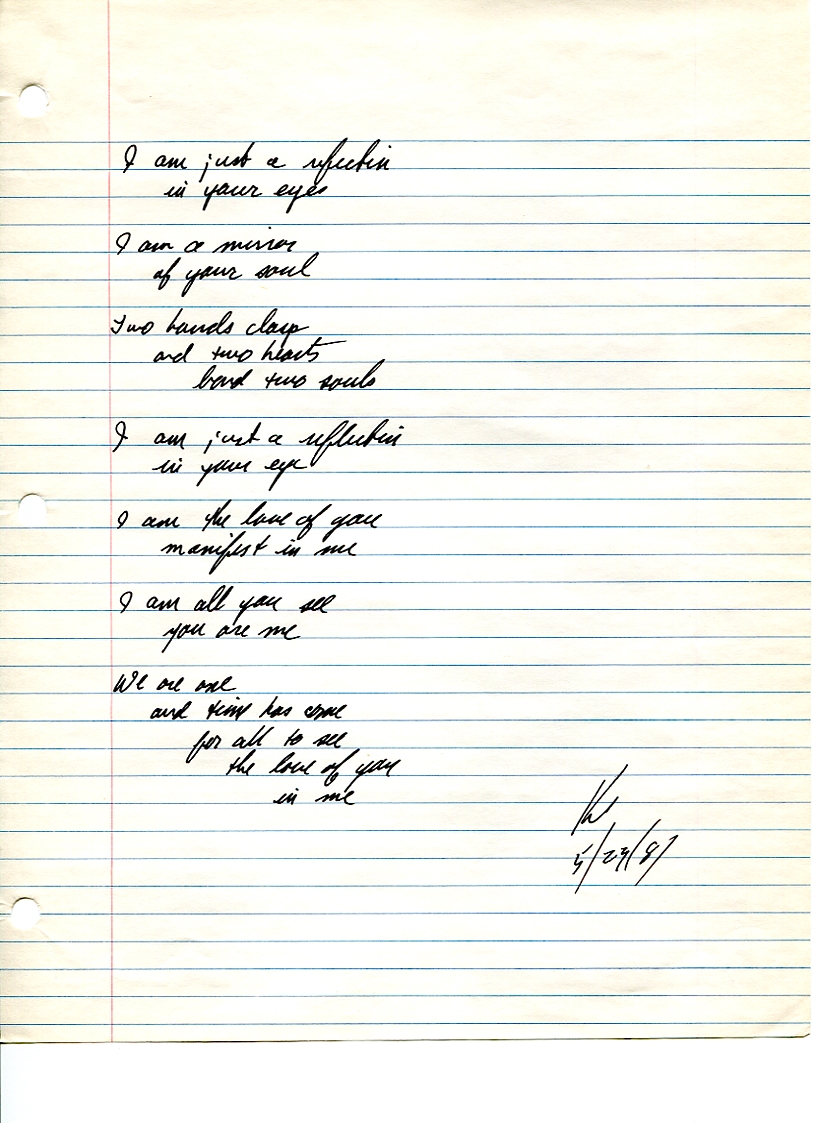 I am just a reflection
in your eyes
I am a mirror
of your soul
Two hands clasp
and two hearts
bond two souls
I am just a reflection
in your eye
I am the love of you
manifest in me
I am all you see
you are me
We are one
and time has come
for all to see
the love of you
in me
5/23/87